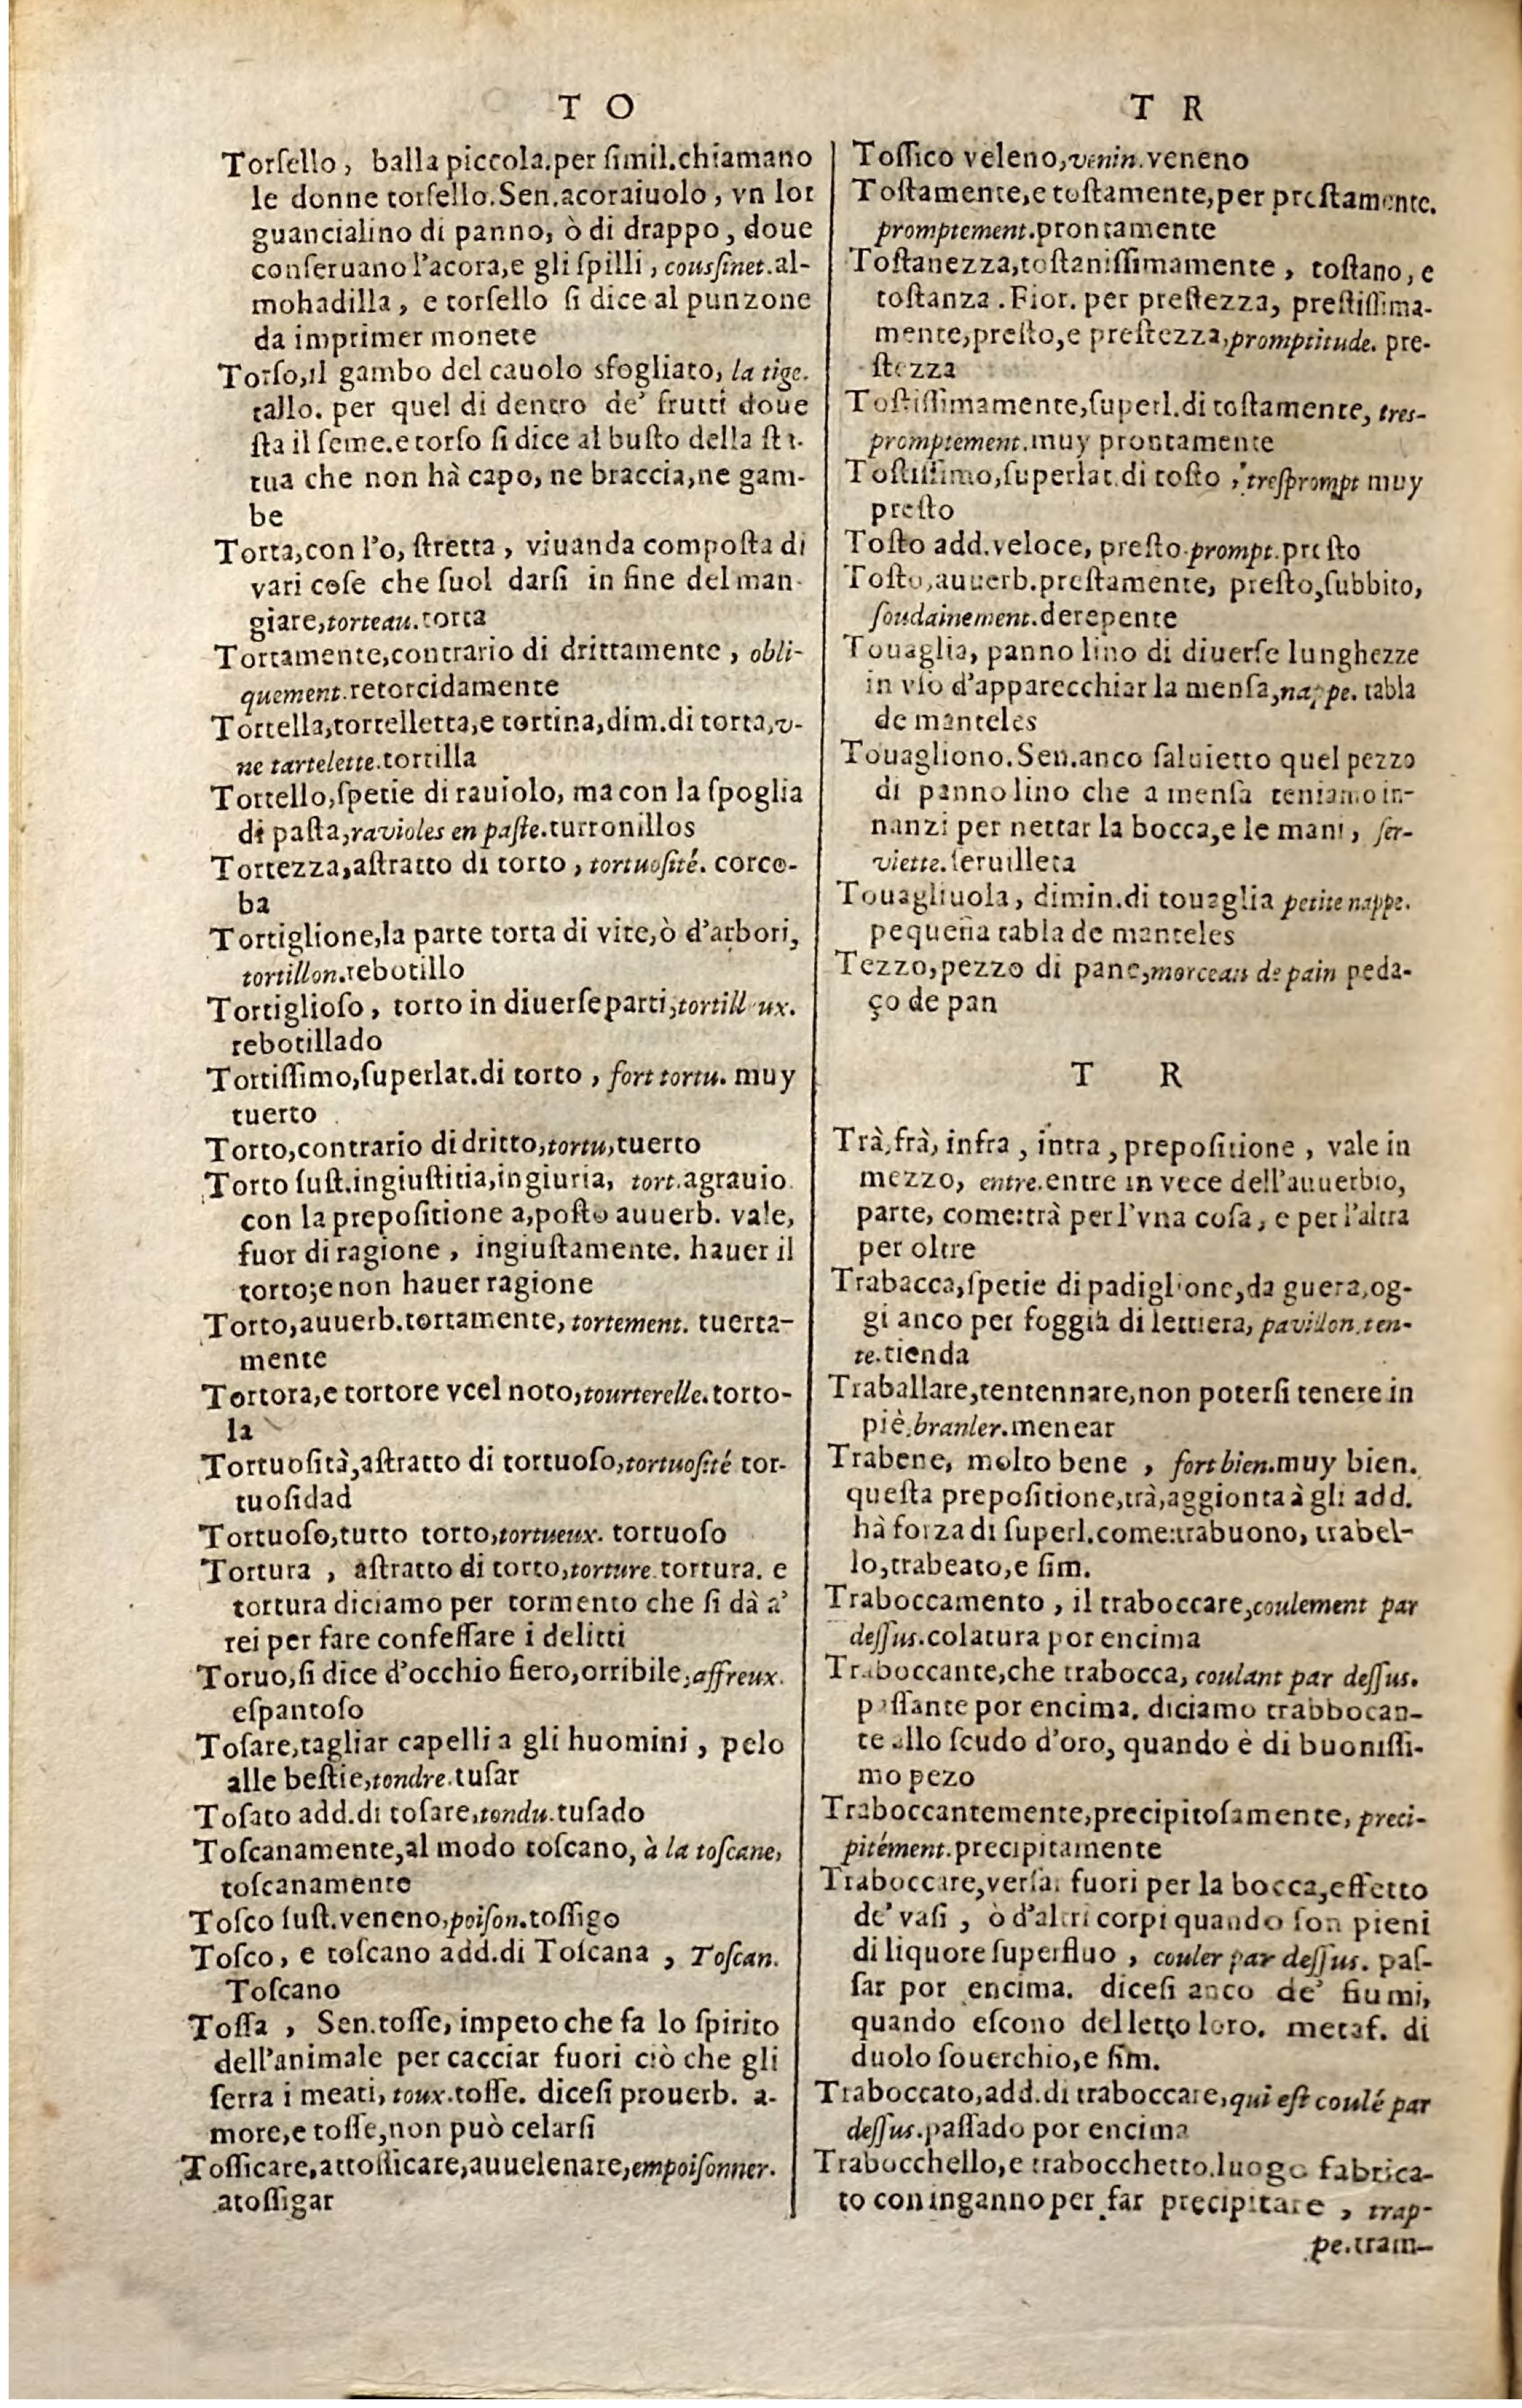 T O
Torſello, balla piccola.per ſimil.chiamano
le donne torſello.Sen.acoraiuolo, vn lor
guancialino di panno, ò di drappo, doue
conſeruano l'acora,e gli ſpilli, coussinet.al-
mohadilla, e torſello ſi dice al punzone
da imprimer monete
Torſo,il gambo del cauolo sfogliato, la tige.
tallo. per quel di dentro de' frutti doue
ſta il ſeme.e torſo ſi dice al buſto della ſta-
tua che non hà capo, ne braccia,ne gam-
be
Torta,con l'o, ſtretta, viuanda compoſta di
vari coſe che ſuol darſi in fine del man-
giare,torteau.torta
Tortamente,contrario di drittamente, obli-
quement.retorcidamente
Tortella,tortelletta,e tortina,dim.di torta,v-
ne tartelette.tortilla
Tortello,ſpetie di rauiolo, ma con la ſpoglia
di paſta,ravioles en paſte.turronillos
Tortezza,aſtratto di torto, tortuoſité. corco-
ba
Tortiglione,la parte torta di vite,ò d'arbori,
tortillon.rebotillo
Tortiglioſo, torto in diuerſe parti,tortill ux.
rebotillado
Tortiſſimo,ſuperlat.di torto, fort tortu. muy
tuerto
Torto,contrario di dritto,tortu,tuerto
Torto ſuſt.ingiuſtitia,ingiuria, tort.agrauio
con la prepoſitione a,poſto auuerb. vale,
fuor di ragione, ingiuſtamente. hauer il
torto;e non hauer ragione
Torto,auuerb.tortamente, tortement. tuerta-
mente
Tortora,e tortore vcel noto,tourterelle.torto-
la
Tortuoſità,aſtratto di tortuoſo,tortuoſité tor-
tuoſidad
Tortuoſo,tutto torto,tortueux. tortuoſo
Tortura, aſtratto di torto,torture.tortura. e
tortura diciamo per tormento che ſi dà a'
rei per fare confeſſare i delitti
Toruo,ſi dice d'occhio fiero,orribile;affreux.
eſpantoſo
Toſare,tagliar capelli a gli huomini, pelo
alle beſtie,tondre.tuſar
Toſato add.di toſare,tondu.tuſado
Toſcanamente,al modo toſcano, à la toſcane,
toſcanamente
Toſco ſuſt.veneno,poiſon.toſſigo
Toſco, e toſcano add.di Toſcana, Toſcan.
Toſcano
Toſſa, Sen.toſſe, impeto che fa lo ſpirito
dell'animale per cacciar fuori ciò che gli
ſerra i meati, toux.toſſe. diceſi prouerb. a-
more,e toſſe,non può celarſi
Toſſicare,attoſſicare,auuelenare,empoiſonner.
atoſſigar
T R
Toſſico veleno,venin.veneno
Toſtamente,e toſtamente,per preſtamente.
promptement.prontamente
Toſtanezza,toſtaniſſimamente, toſtano, e
toſtanza.Fior. per preſtezza, preſtiſſima-
mente,preſto,e preſtezza,promptitude. pre-
ſtezza
Toſtiſſimamente,ſuperl.di toſtamente, tres-
promptement.muy prontamente
Toſtiſſimo,ſuperlat.di toſto, treſprompt muy
preſto
Toſto add.veloce, preſto.prompt.preſto
Toſto,auuerb.preſtamente, preſto,ſubbito,
ſoudainement.derepente
Touaglia, panno lino di diuerſe lunghezze
in vſo d'apparecchiar la menſa,nappe. tabla
de manteles
Touagliono.Sen.anco ſaluietto quel pezzo
di panno lino che a menſa teniamo in-
nanzi per nettar la bocca,e le mani, ſer-
viette.ſeruilleta
Touagliuola, dimin.di touaglia petite nappe.
pequeña tabla de manteles
Tezzo,pezzo di pane,morceau de pain peda-
ço de pan
T R
Trà,frà, infra, intra, prepoſitione, vale in
mezzo, entre.entre in vece dell'auuerbio,
parte, come:trà per l'vna coſa, e per l'altra
per oltre
Trabacca,ſpetie di padiglione,da guera,og-
gi anco per foggia di lettiera, pavillon,ten-
te.tienda
Traballare,tentennare,non poterſi tenere in
piè.branler.menear
Trabene, molto bene, fort bien.muy bien.
queſta prepoſitione,trà,aggionta à gli add.
hà forza di ſuperl.come:trabuono, trabel-
lo,trabeato,e ſim.
Traboccamento, il traboccare,coulement par
deſſus.colatura por encima
Traboccante,che trabocca, coulant par deſſus.
paſſante por encima. diciamo trabbocan-
te allo ſcudo d'oro, quando è di buoniſſi-
mo pezo
Traboccantemente,precipitoſamente, preci-
pitément.precipitamente
Traboccare,verſar fuori per la bocca,effetto
de' vaſi, ò d'altri corpi quando ſon pieni
di liquore ſuperfluo, couler par deſſus. paſ-
ſar por encima. diceſi anco de' fiumi,
quando eſcono del letto loro. metaf. di
duolo ſouerchio,e ſim.
Traboccato,add.di traboccare,qui eſt coulé par
deſſus.paſſado por encima
Trabocchello,e trabocchetto.luogo fabrica-
to con inganno per far precipitare, trap-
pe.tram-